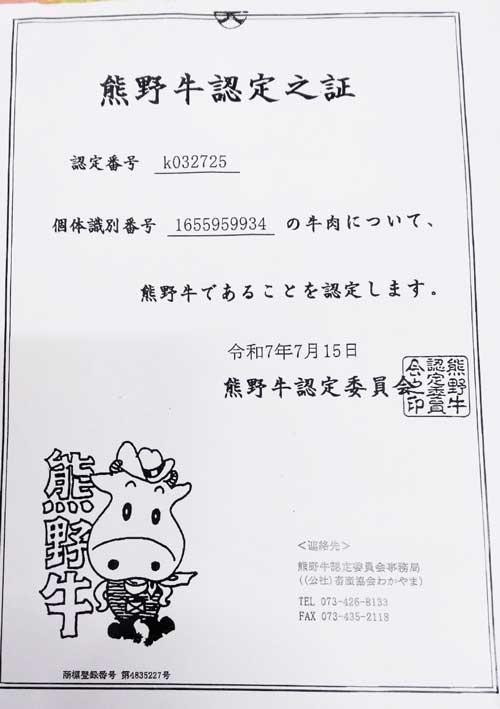 熊野牛認定之証
認定番号 k032725
個体識別番号 1655959934 の牛肉について、
熊野牛であることを認定します。
令和7年7月15日
熊野牛認定委員会
熊野牛
認定委員
会之印
熊野牛
＜連絡先＞
熊野牛認定委員会事務局
((公社)畜産協会わかやま)
TEL 073-426-8133
FAX 073-435-2118
商標登録番号 第4835227号